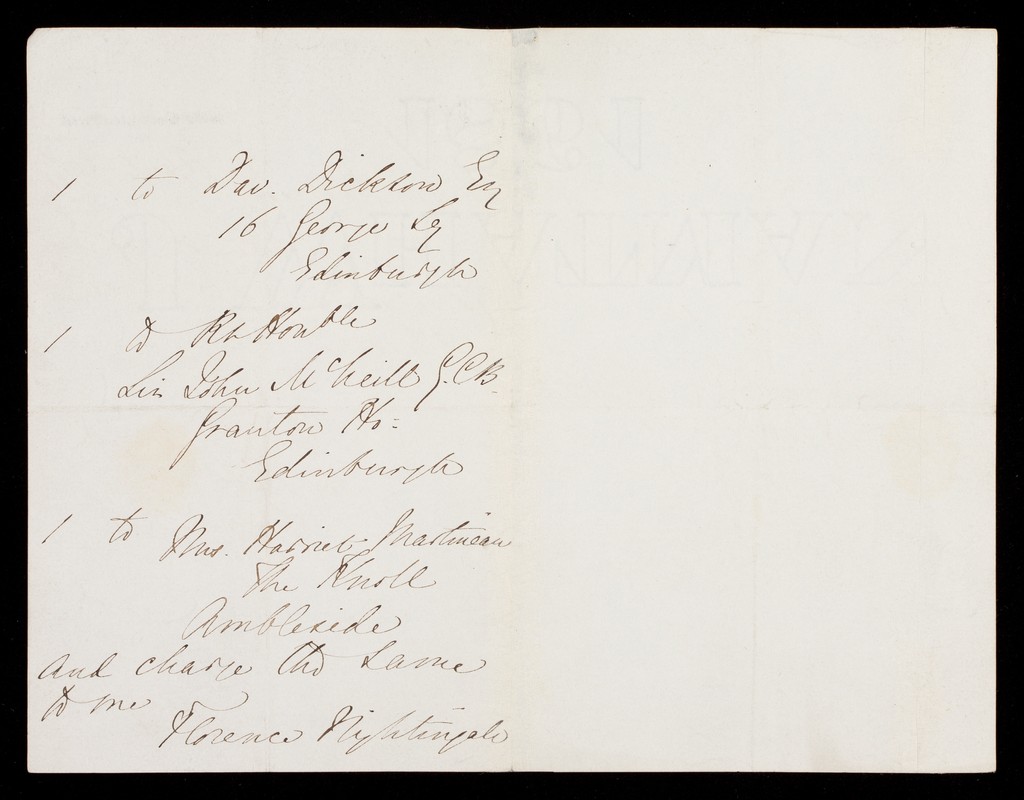 1 to Dav. Dickson Esq
16 George Sq
Edinburgh
1 to Rt Honble
Sir John McNeill G.C.B.
Granton Ho:
Edinburgh
1 to Mrs. Harriet Martineau
The Knoll
Ambleside
and charge the same
to me
Florence Nightingale